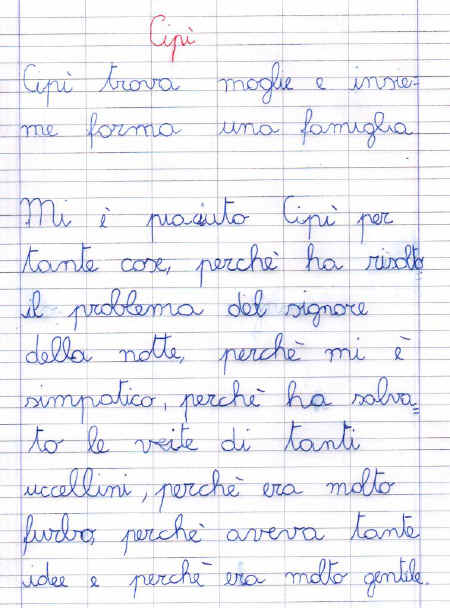 Cipì
Cipì trova moglie e insie-
me forma una famiglia
Mi è piaciuto Cipì per
tante cose, perchè ha risolto
il problema del signore
della notte, perchè mi è
simpatico, perchè ha salva=
to le veite di tanti
uccellini, perchè era molto
furbo, perchè aveva tante
idee e perchè era molto gentile.